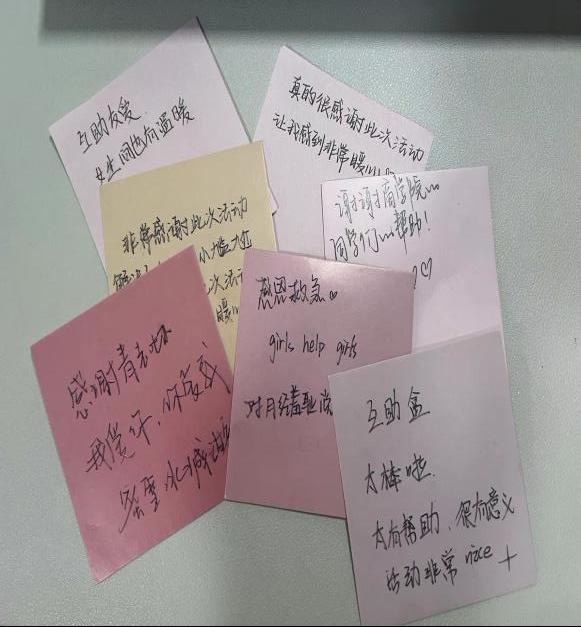 互助友爱
女生间也有温暖
真的很感谢此次活动
让我感到非常暖心
非常感谢此次活动
小尴尬
此次活动
暖
谢谢商学院
同学们 帮助!
♡
感恩救急♡
girls help girls
对月经羞耻说
感谢青志协
我爱你
希望
互助盒
太棒啦
太有帮助、很有意义
活动非常nice +